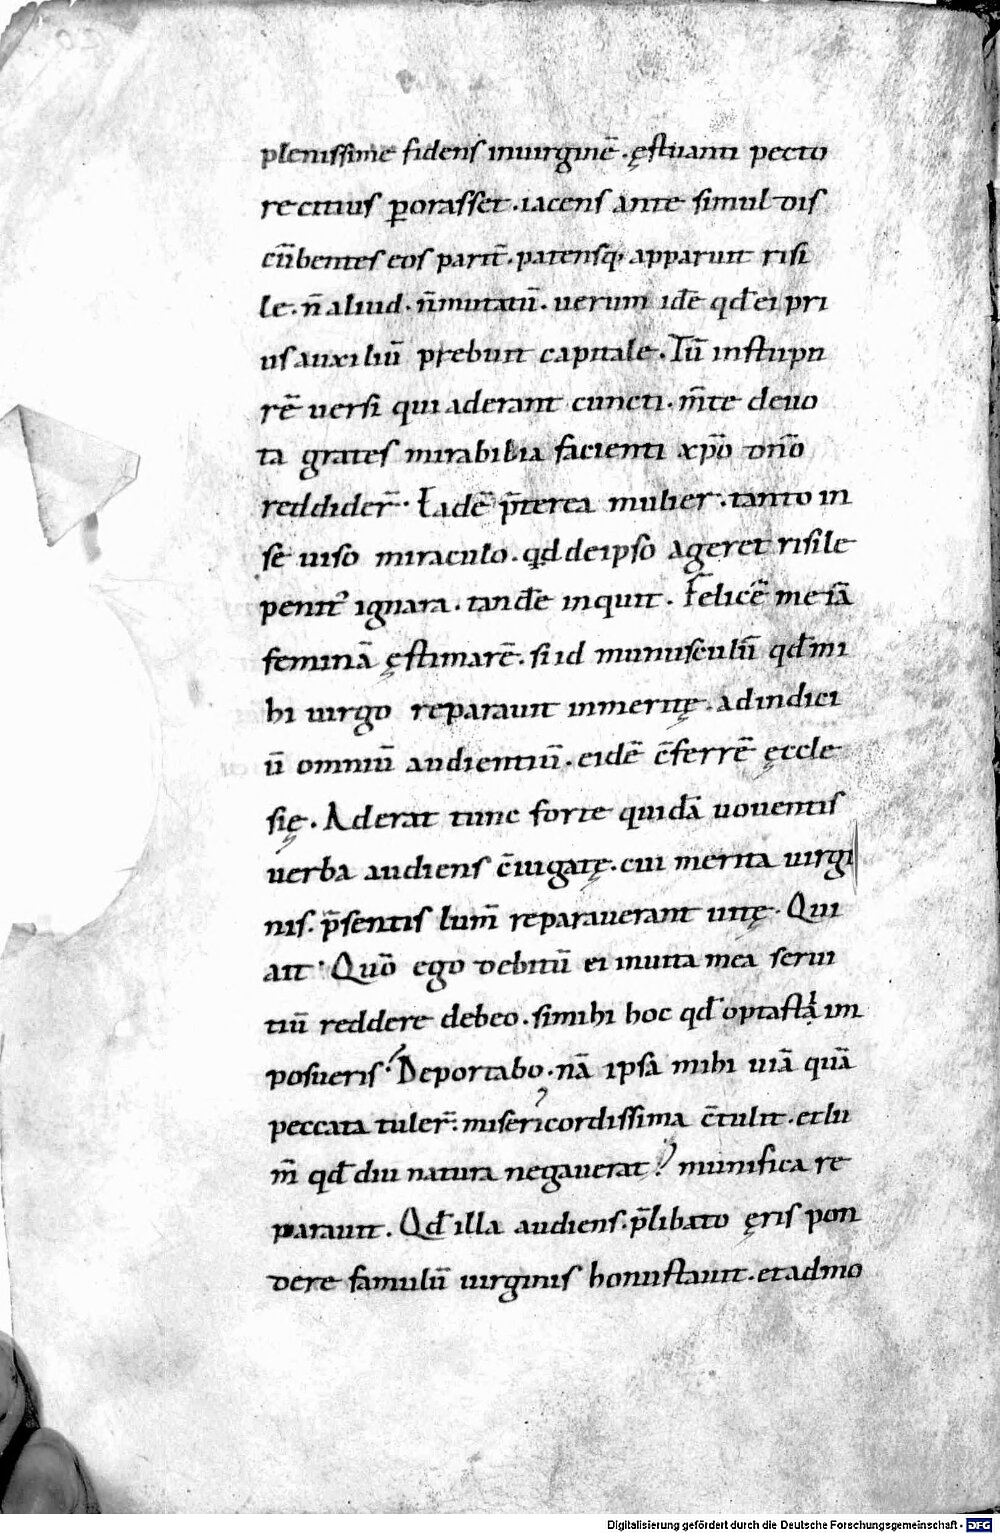 plenissime fidens inuirginē. ęstuanti pecto
re citius ꝑorasset. iacens ante simul dis
cūbentes eos parit̄. patensq; apparuit risi
le. n̄ aliud. n̄ mutatū. uerum idē qđ ei pri
us auxiliū prebuit capitale. Tū instupo
rē uersi qui aderant cuncti. m̄te deuo
ta grates mirabilia facienti xp̄o dn̄o
reddider̄. Eadē p̄terea mulier. tanto in
se uiso miraculo. qđ deipso ageret risile
penit᾽ ignara. tandē inquit. Felicē me iā
feminā ęstimarē. si id munusculū qđ mi
hi uirgo reparauit inmeritę. adindici
ū omniū audientiū. eidē c̄ferrē ęccle
się. Aderat tunc forte quidā uouentis
uerba audiens c̄iugatę. cui merita uirgi
nis. p̄sentis lum̄ reparauerant uitę. Qui
ait. Quō ego debitū ei inuita mea serui
tiū reddere debeo. si mihi hoc qđ optasti im
posueris. Deportabo. nā ipsa mihi uiā quā
peccata tuler̄. misericordissima c̄tulit. et lu
m̄ qđ diu natura negauerat? munifica re
parauit. Qđ illa audiens. p̄libato ęris pon
dere famulū uirginis honustauit. et admo
Digitalisierung gefördert durch die Deutsche Forschungsgemeinschaft - DFG